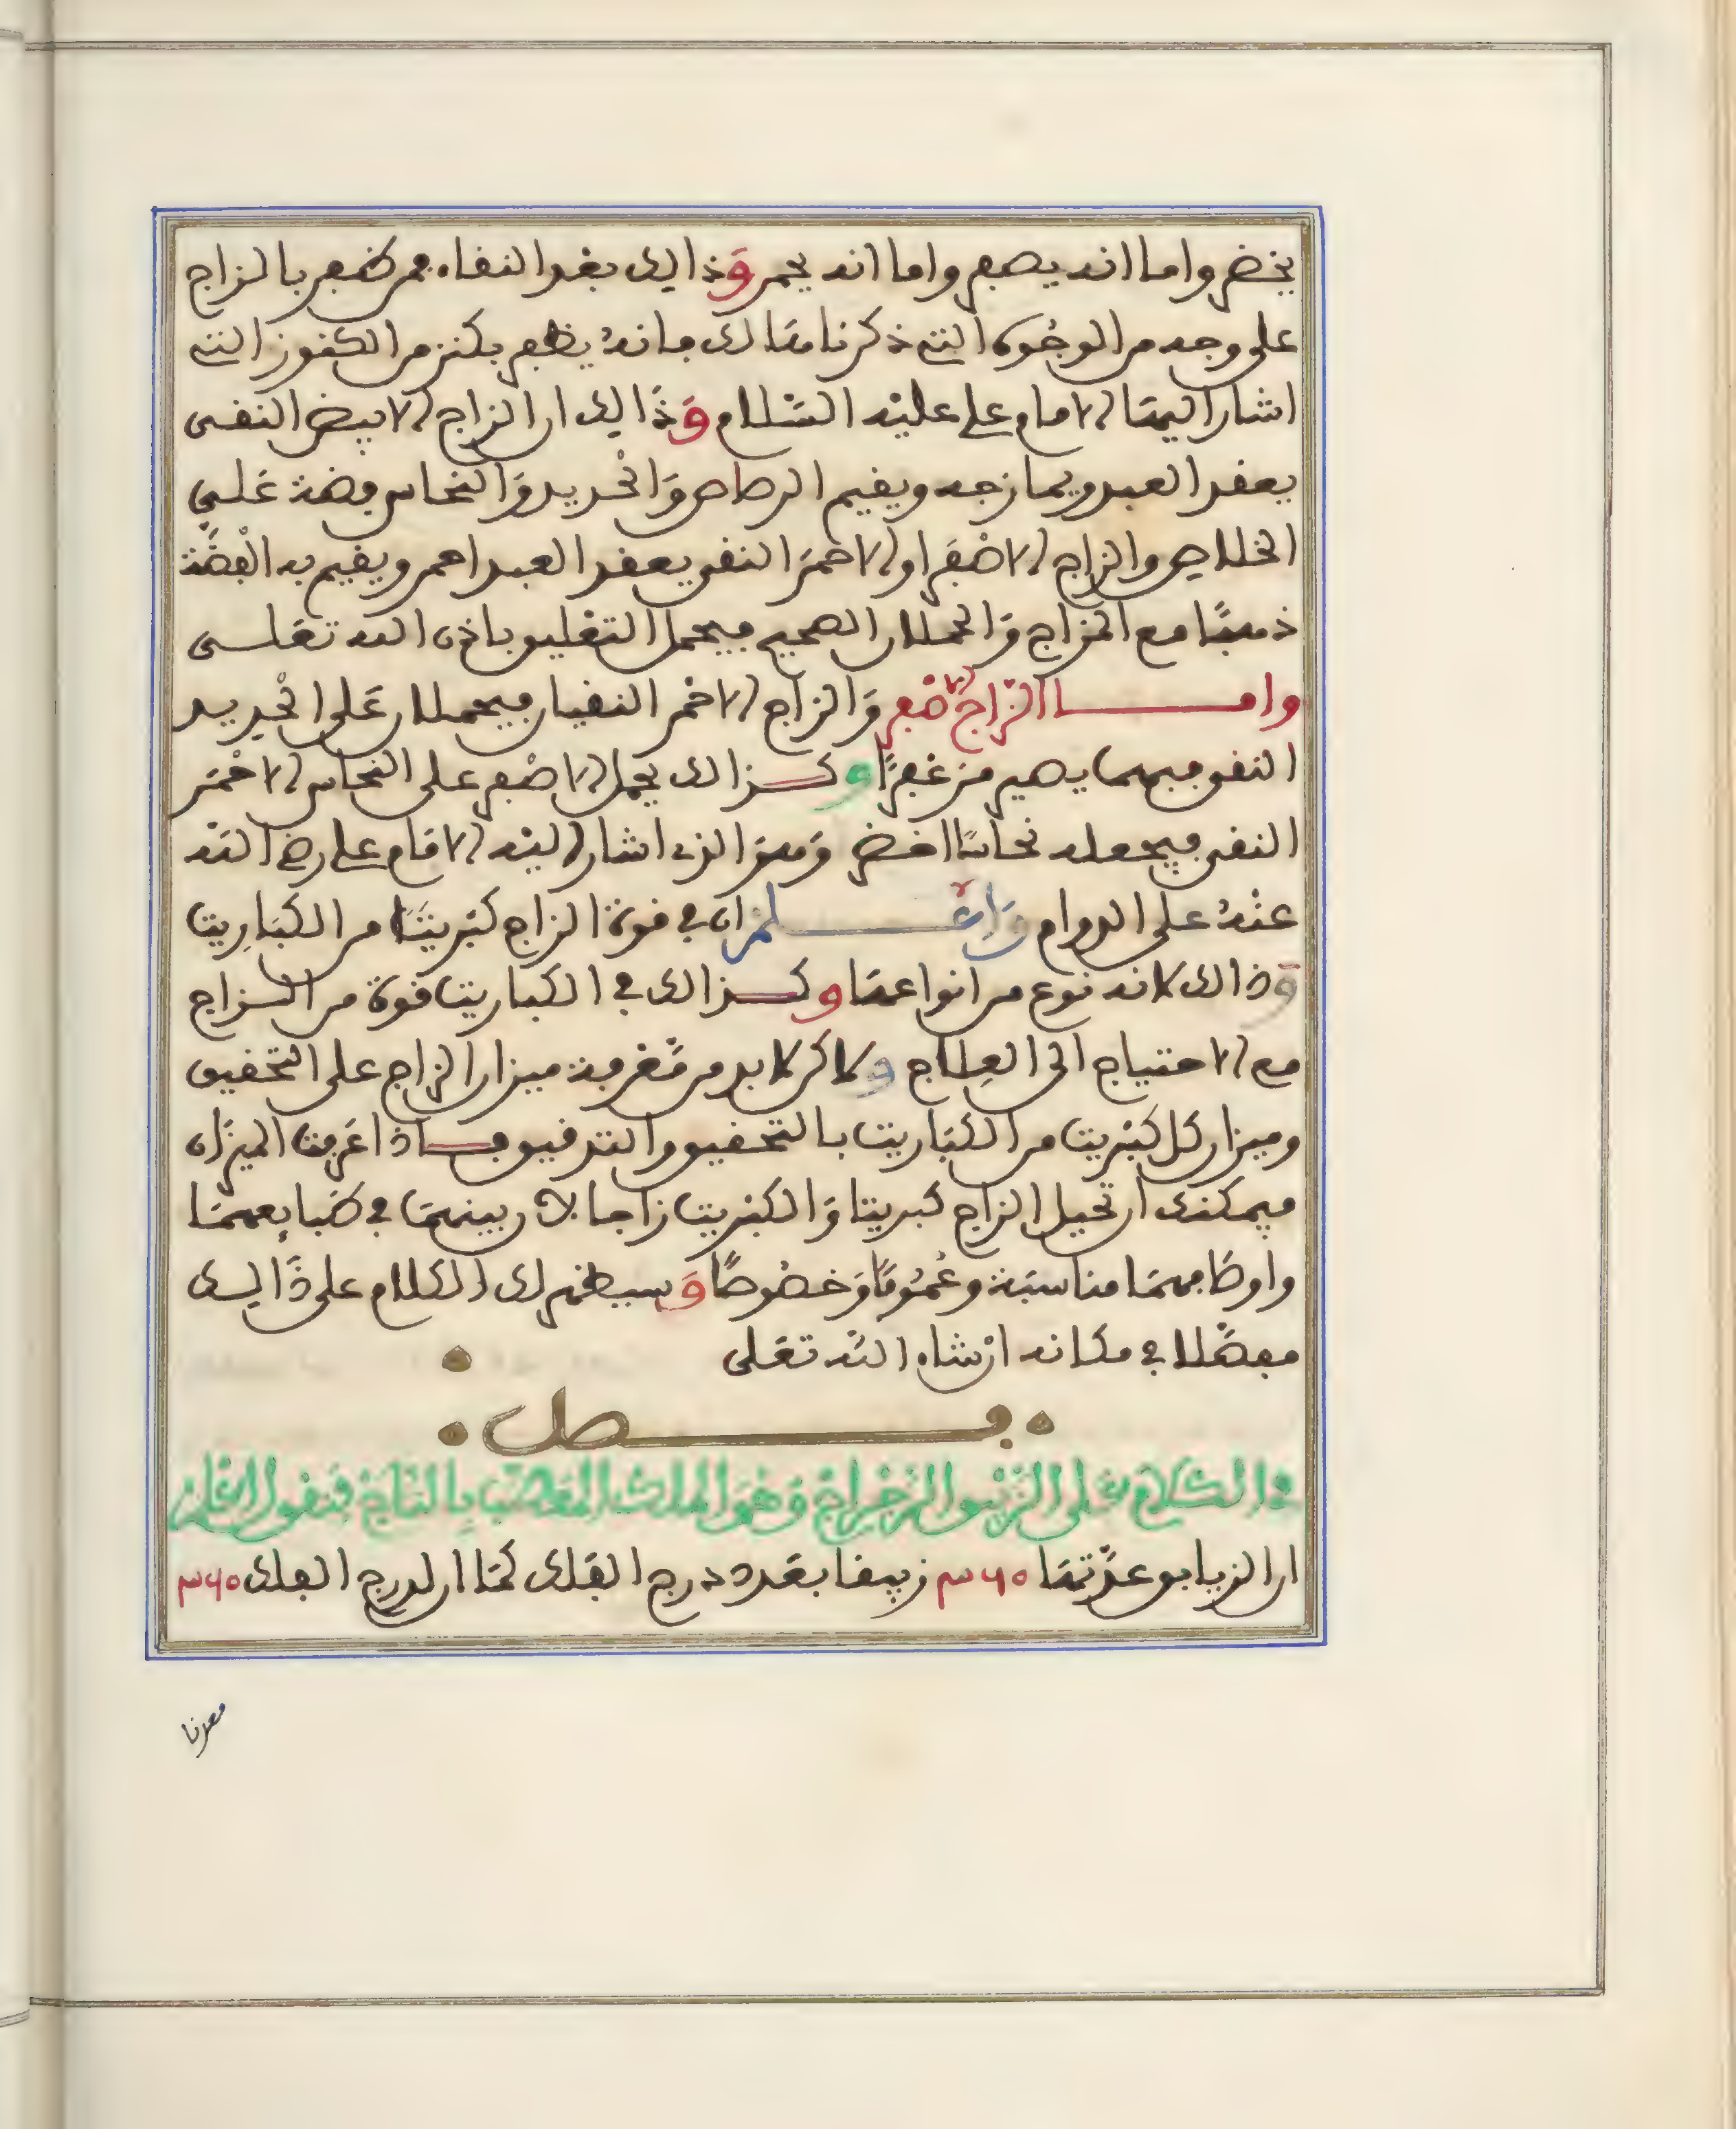 يخضر واما انه يصفر واما انه يحمر وذالك بعد النقاء فمن ظفر بالزاج
على وجه من الوجوه التي ذكرنا هنالك فانه يظفر بكنز من الكنوز التي
اشار اليها الامام علي عليه السلام وذالك ان الزاج الابيض النقى
يعقد العبد ويمازجه ويقيم الرصاص والحديد والنحاس فضة على
الخلاص والزاج الاصفر او الاحمر النقي يعقد العبد احمر ويقيم به الفضة
ذهبًا مع المزاج والحملان الصحيح فيحمل التعليق باذن الله تعلى
واما الزاج الاصفر والزاج الاحمر النقيان فيحملان على الحديد
النقي فبهما يصير مزعفرًا وكذالك يحمل الاصفر على النحاس الاحمر
النقي فيجعله نحاسًا اخضر وهو الذي اشار اليه الامام علي رضي الله
عنه على الدوام واعلم ان في قوة الزاج كبريتًا من الكباريت
وذالك لانه نوع من انواعها وكذالك في الكباريت قوة من الزاج
مع الاحتياج الى العلاج ولاكن لابد من معرفة ميزان الزاج على التحقيق
وميزان كل كبريت من الكباريت بالتحقيق والتدقيق فاذا عرفت الميزان
فيمكنك ان تحيل الزاج كبريتا والكبريت زاجا لان بينهما في طبايعهما
واوصافهما مناسبة وعمومًا وخصوصًا وسيظهر لك الكلام على ذالك
مفصلا في مكانه ان شاء الله تعلى
فصل
في الكلام على الزئبق الرجراج وهو الملك المعصب بالتاج فنقول اعلم
ان الزيابق عدتها ٣٦٠ زيبقا بعدد درج الفلك كما ان لدرج الفلك ٣٦٠
معدنا